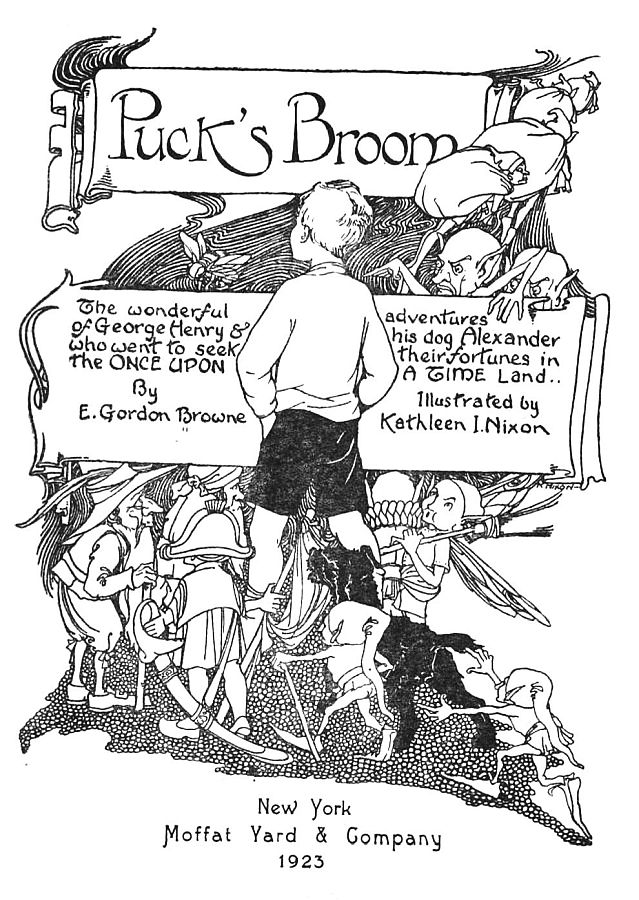 Puck's Broom
The wonderful adventures
of George Henry & his dog Alexander
who went to seek their fortunes in
the ONCE UPON A TIME Land..
By
E. Gordon Browne
Illustrated by
Kathleen I. Nixon
NIXON
New York
Moffat Yard & Company
1923